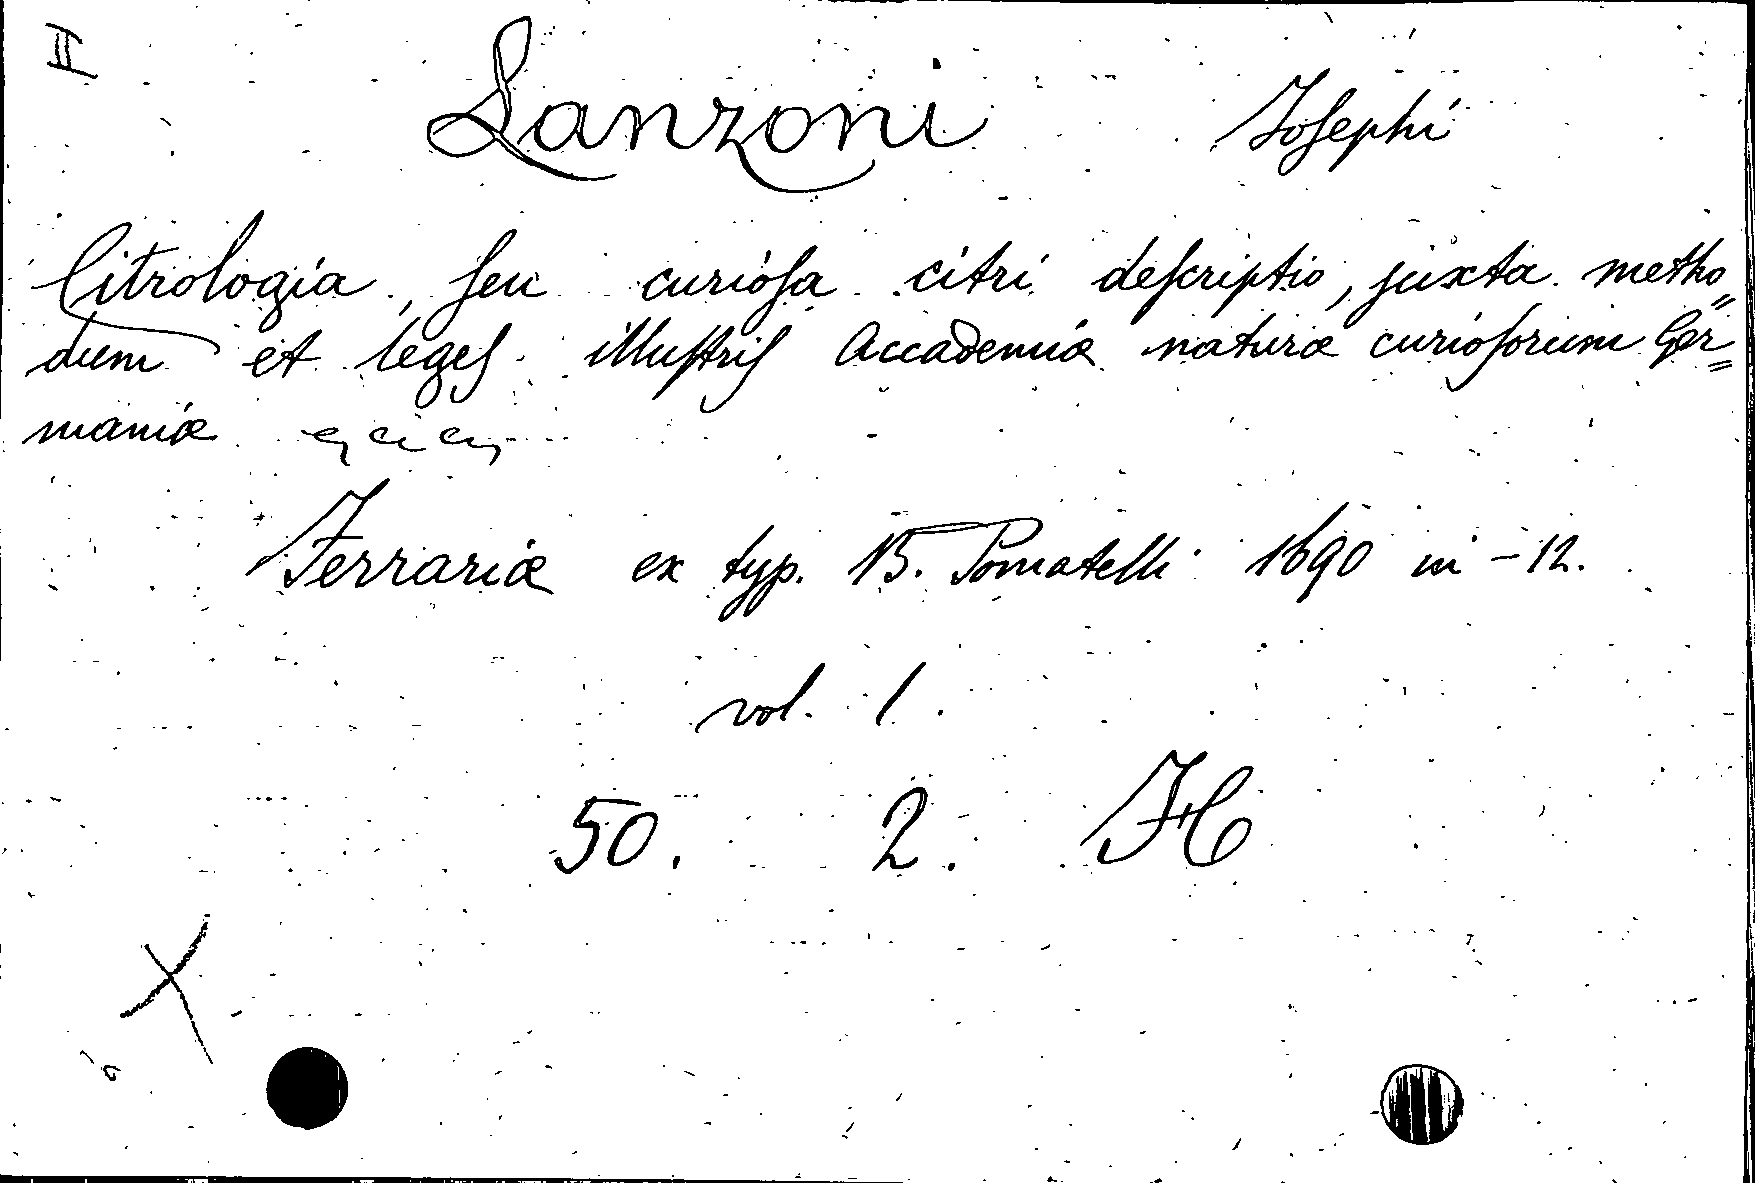 II
Lanzoni Josephi
Citrologia, ſeu curioſa citri deſcriptio, juxta metho=
dum et legeſ illuſtriſ Accademiæ naturæ curioſorum Ger=
maniæ
Ferrariæ ex typ. B. Pomatelli 1690 in -12.
vol. 1.
50. 2. H
X